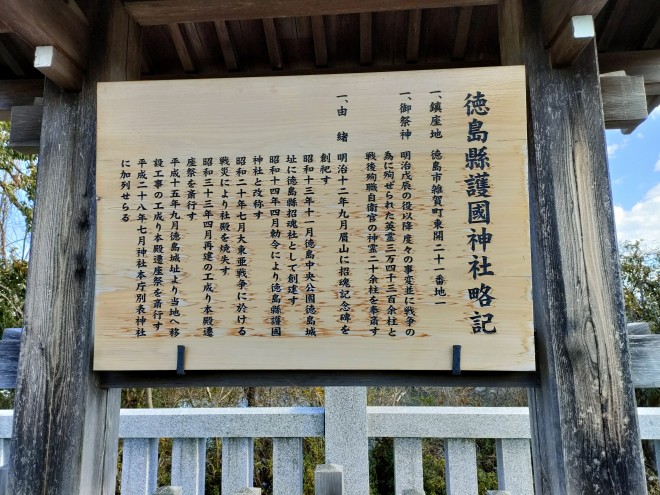 徳島縣護國神社略記
一、鎮座地 徳島市雑賀町東開二十一番地一
一、御祭神 明治戊辰の役以降度々の事変並に戦争の
為に殉ぜられた英霊三万四千三百余柱と
戦後殉職自衛官の神霊二十余柱を奉斎す
一、由緒 明治十二年九月眉山に招魂記念碑を
創祀す
昭和十三年十一月徳島中央公園徳島城
址に徳島縣招魂社として創建す
昭和十四年四月勅令により徳島縣護國
神社と改称す
昭和二十年七月大東亜戦争に於ける
戦災により社殿を焼失す
昭和三十三年四月再建の工成り本殿遷
座祭を斎行す
平成十五年九月徳島城址より当地へ移
設工事の工成り本殿遷座祭を斎行す
平成二十八年七月神社本庁別表神社
に加列せらる